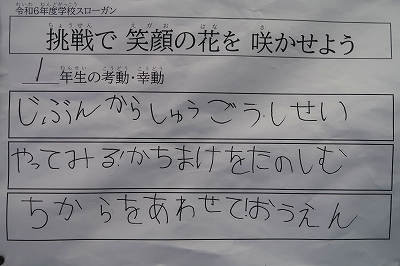 令和6年度学校スローガン
挑戦で 笑顔の花を 咲かせよう
1年生の考動・幸動
じぶんからしゅうごう・しせい
やってみる!かちまけをたのしむ
ちからをあわせて!おうえん